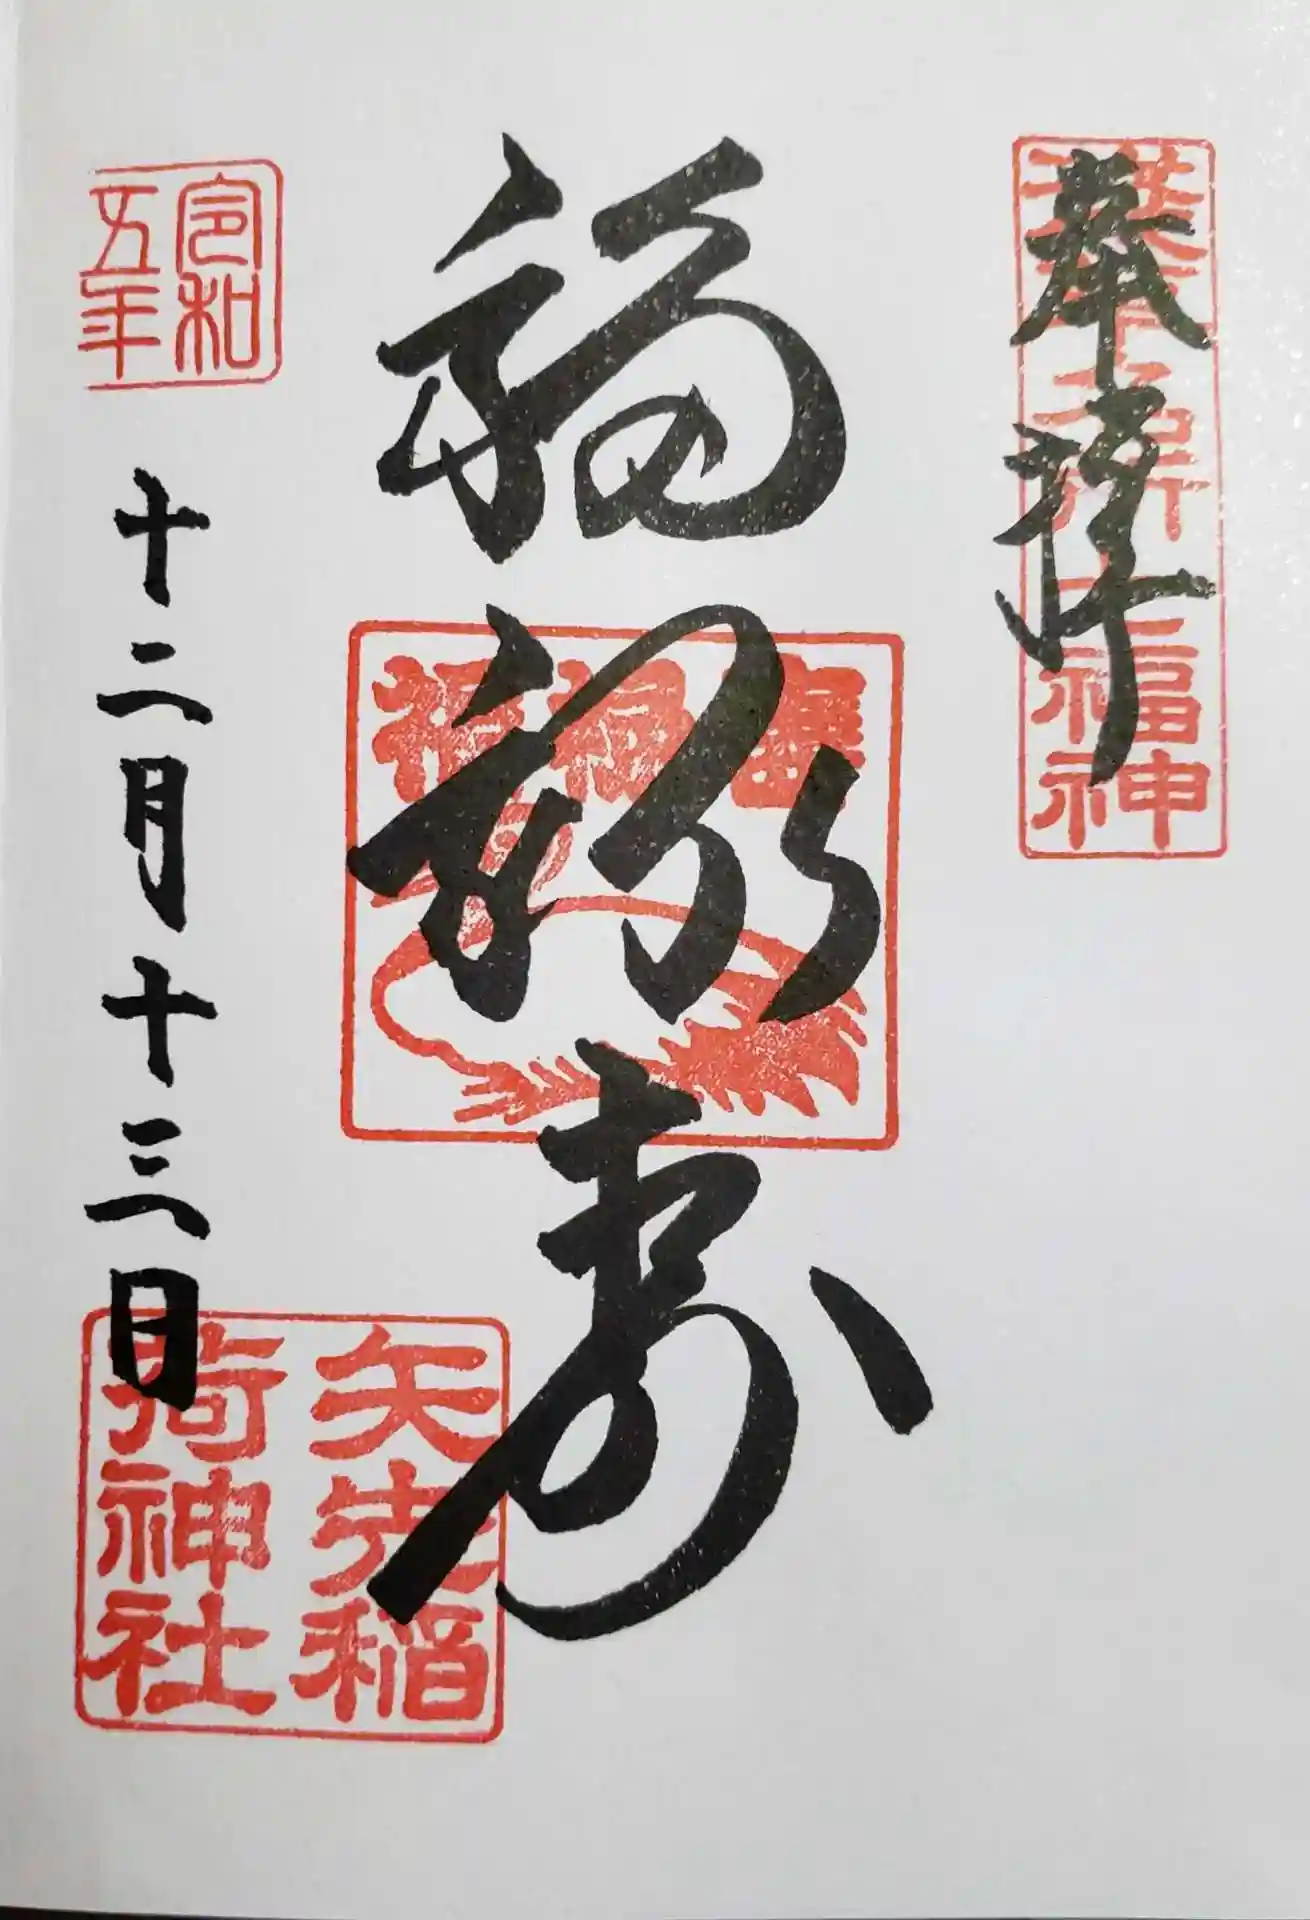 奉拝
淺草名所七福神
福禄寿
令和
五年
十二月十三日
矢先稲
荷神社